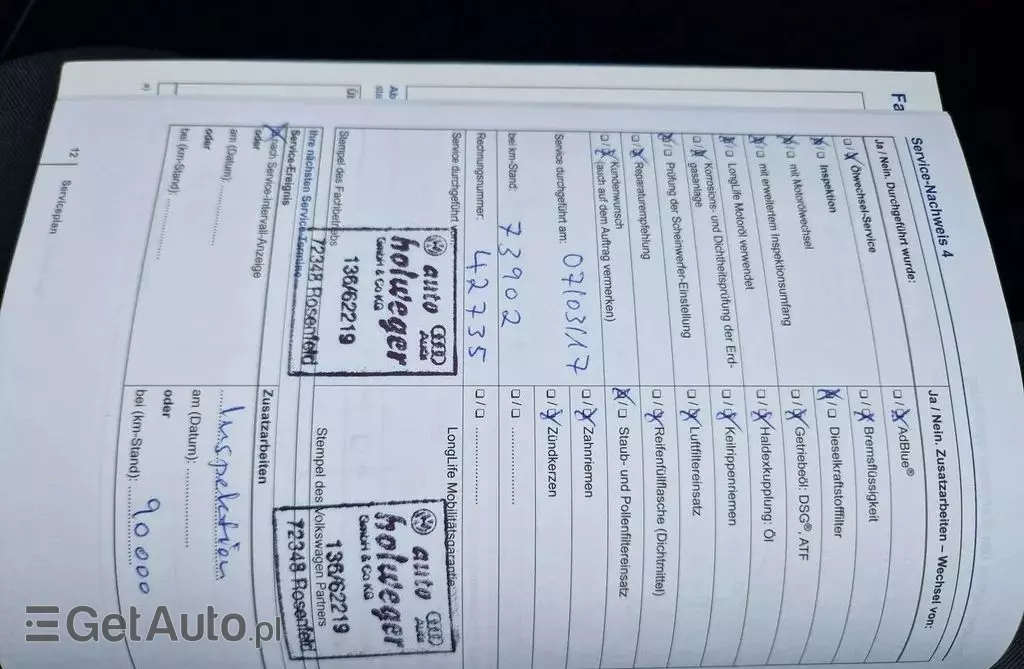 Fa
Ab
sta
Üb
a)
Service-Nachweis 4
Ja / Nein. Durchgeführt wurde:
☐/☒ Ölwechsel-Service
☒/☐ Inspektion
☒/☐ mit Motorölwechsel
☒/☐ mit erweitertem Inspektionsumfang
☒/☐ LongLife Motoröl verwendet
☐/☒ Korrosions- und Dichtheitsprüfung der Erd-
gasanlage
☒/☐ Prüfung der Scheinwerfer-Einstellung
☐/☒ Reparaturempfehlung
☐/☒ Kundenwunsch
(auch auf dem Auftrag vermerken)
Service durchgeführt am: 07/03/17
bei km-Stand: 73902
Rechnungsnummer: 42735
Service durchgeführt von:
auto Audi
holweger
GmbH & Co KG
136/62219
72348 Rosenfeld
Stempel des Fachbetriebs
Ihre nächsten Service-Termine
Service-Ereignis
☒ nach Service-Intervall-Anzeige
oder
am (Datum):
oder
bei (km-Stand):
12 Serviceplan
Ja / Nein. Zusatzarbeiten – Wechsel von:
☐/☒ AdBlue®
☐/☒ Bremsflüssigkeit
☒/☐ Dieselkraftstofffilter
☐/☒ Getriebeöl: DSG®, ATF
☐/☒ Haldexkupplung: Öl
☐/☒ Keilrippenriemen
☐/☒ Luftfiltereinsatz
☐/☒ Reifenfüllflasche (Dichtmittel)
☒/☐ Staub- und Pollenfiltereinsatz
☐/☒ Zahnriemen
☐/☒ Zündkerzen
☐/☐
☐/☐
LongLife Mobilitätsgarantie
auto Audi
holweger
GmbH & Co KG
136/62219
72348 Rosenfeld
Stempel des Volkswagen Partners
Zusatzarbeiten
Inspektion
am (Datum):
oder
bei (km-Stand): 90000
GetAuto.pl